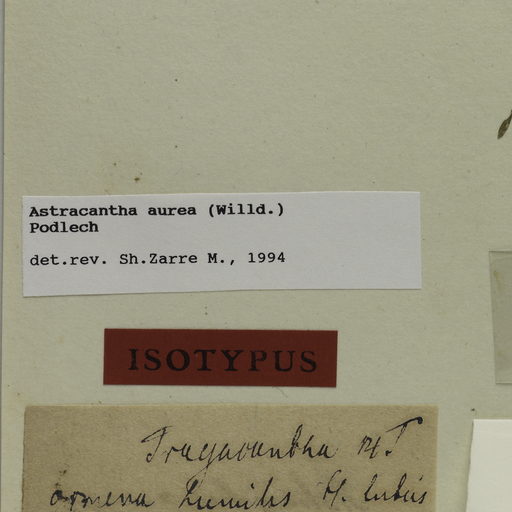 Astracantha aurea (Willd.)
Podlech
det.rev. Sh.Zarre M., 1994
ISOTYPUS
Tragacantha
humilis fl. luteis